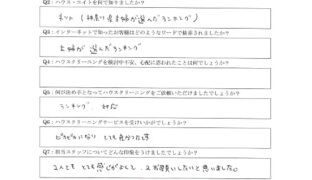 Q2：ハウス・エイトを何で知りましたか？
ネット（神奈川県主婦が選んだランキング）
Q3：インターネットで知ったお客様はどのようなワードで検索されましたか？
主婦が選んだランキング
Q4：ハウスクリーニングを検討中不安、心配に思われたことは何でしょうか？
Q5：何が決め手となってハウスクリーニングをご依頼いただけましたでしょうか？
ランキング 対応
Q6：ハウスクリーニングサービスを受けいかがでしょうか？
ピカピカになり とても良かったです
Q7：担当スタッフについてどんな印象をうけましたでしょうか？
2人とも とても感じがよくて、又お願いしたいと思いました。